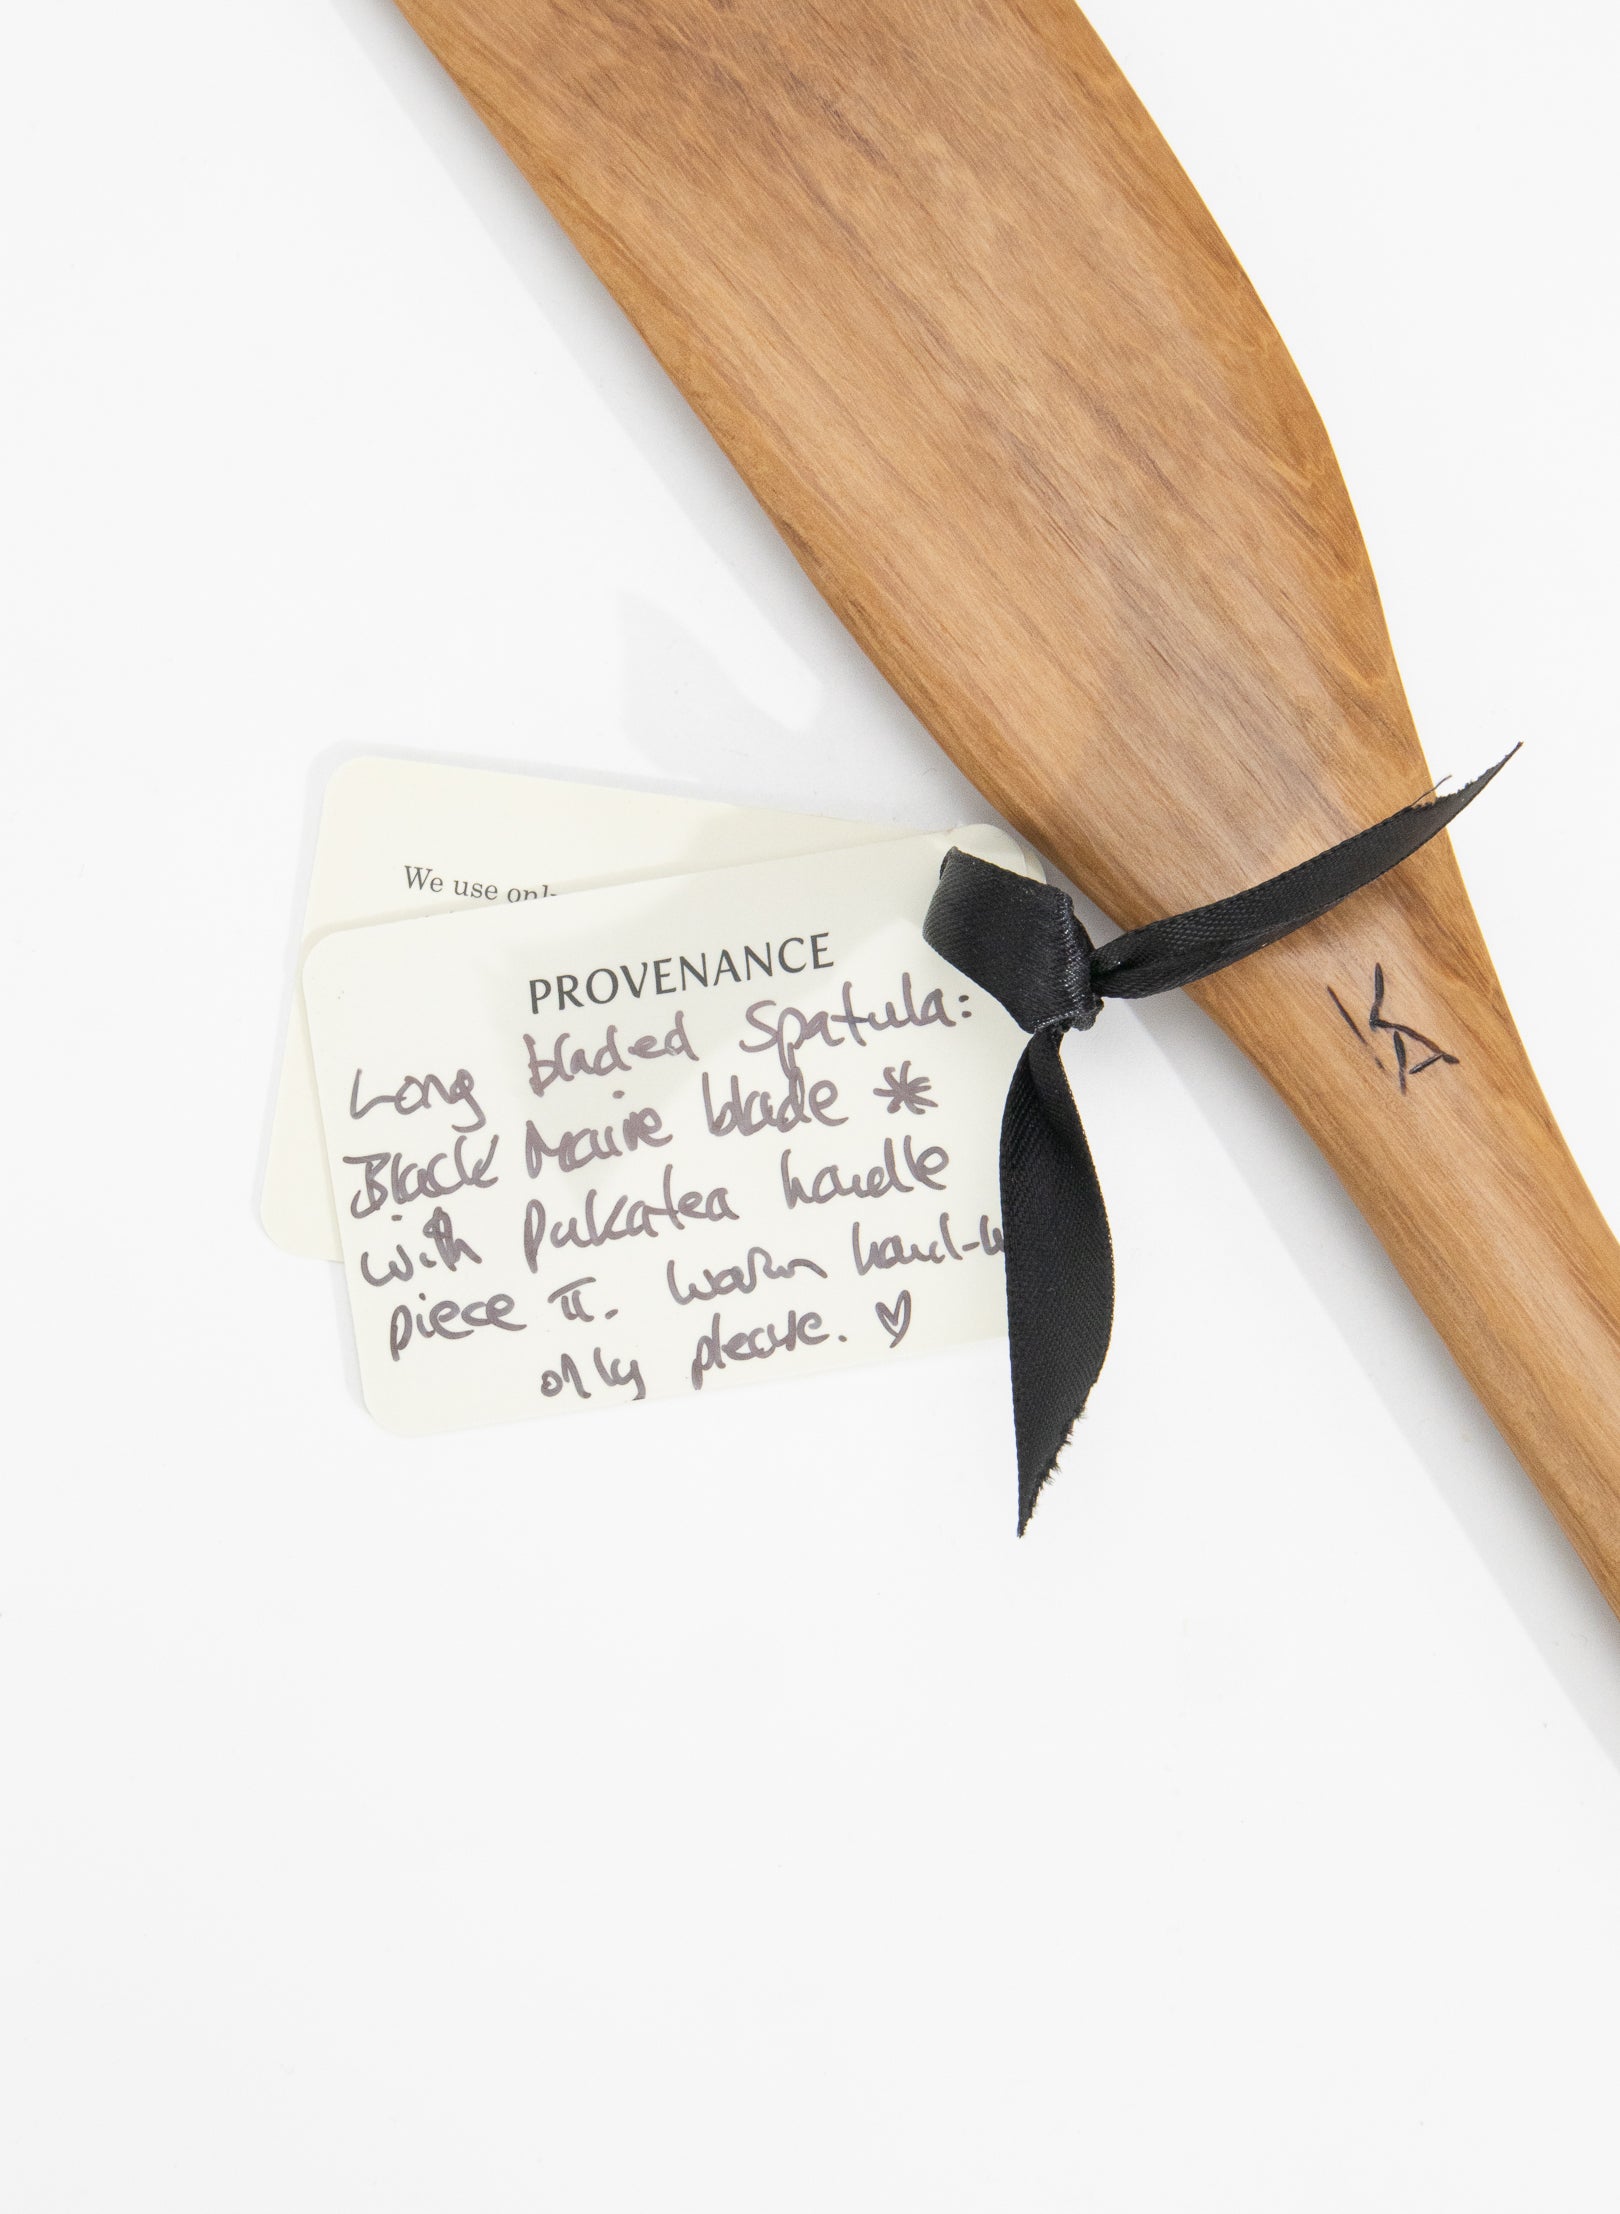 We use onl
PROVENANCE
Long bladed Spatula:
Black Maire blade *
with Pukatea handle
piece II. Warm hand-w
only please. ♡